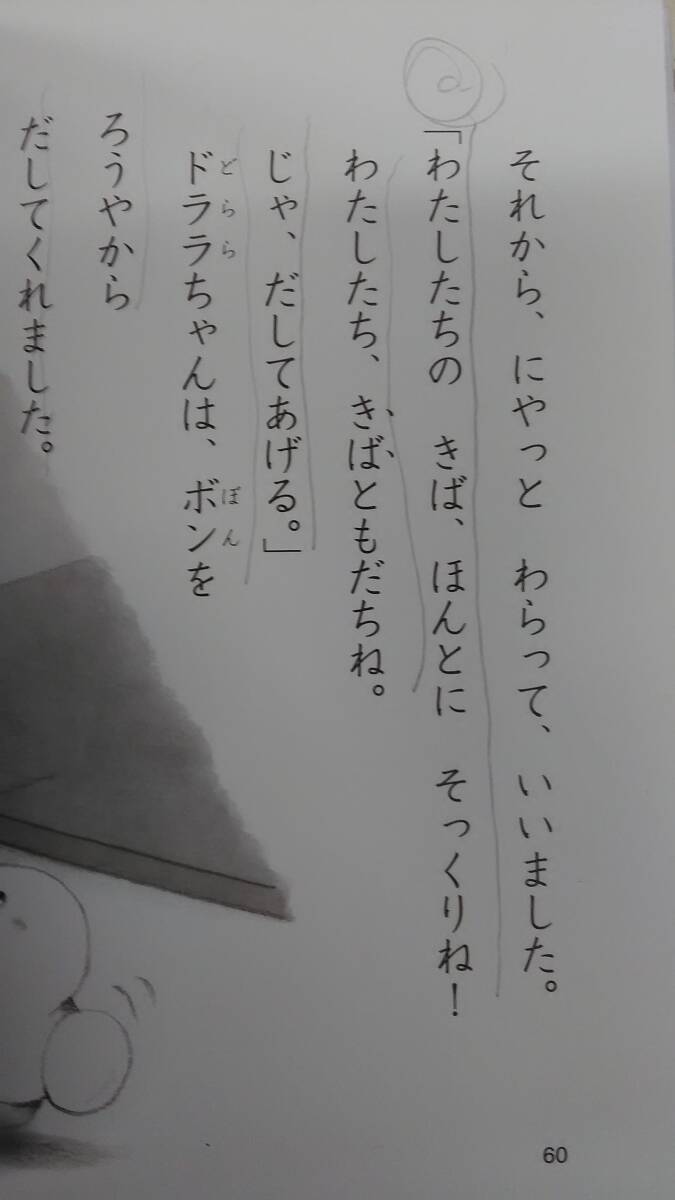 それから、にやっと　わらって、いいました。
「わたしたちの　きば、ほんとに　そっくりね！
わたしたち、きばともだちね。
じゃ、だしてあげる。」
ドララちゃんは、ボンを
どらら　ぼん
ろうやから
だしてくれました。
60